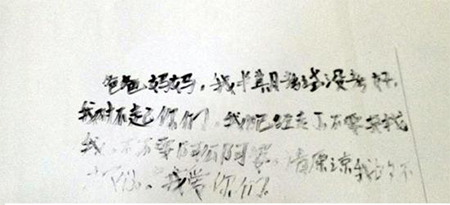 爸爸妈妈，我半期考试没考好，
我对不起你们，我已经走了不要来找
我，不要阿公阿婆，请原谅我的不
我常你们